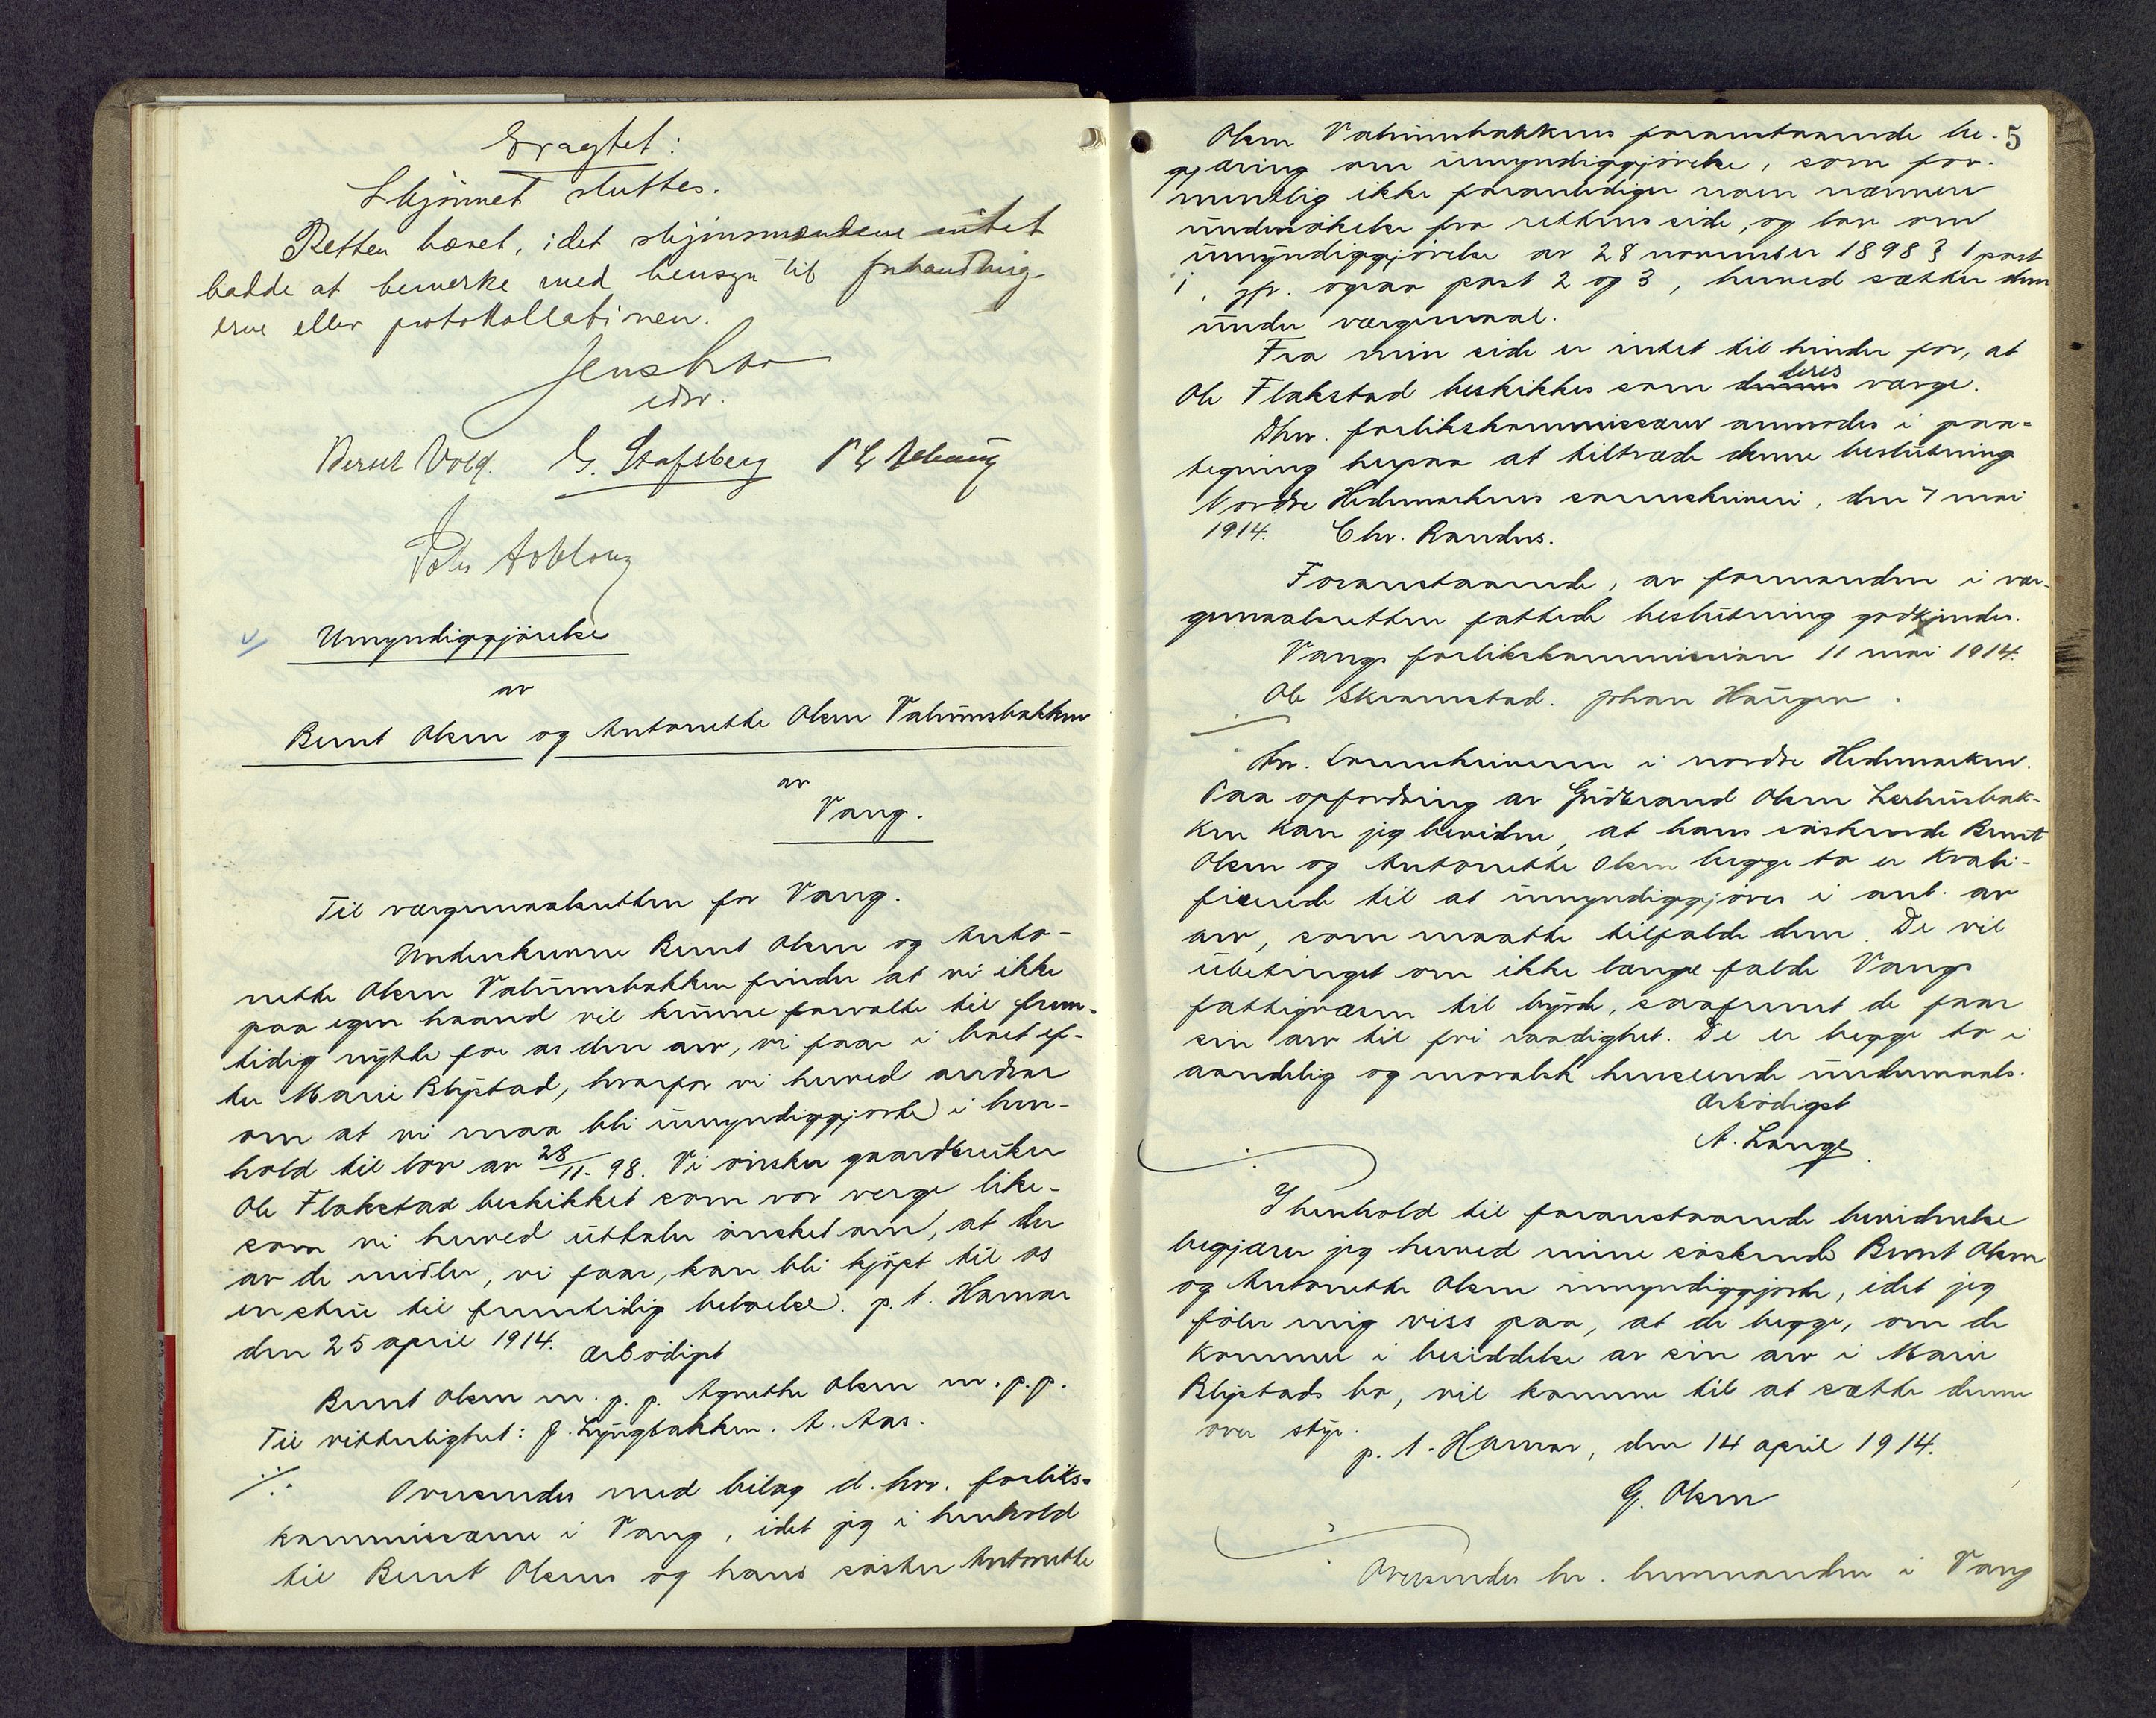 Eragtet:
Skjønnet sluttes.
Retten hævet, idet skjønsmændene intet
hadde at bemerke med hensyn til forhandling-
erne eller protokollationen.
edsv.
Bernt Vold. G. Stafsberg
Umyndiggjörelse
av
Bernt Olsen og Antonette Olsen Valumsbakken
av
Vang.
Til værgemaalsretten for Vang.
Underskrevne Bernt Olsen og Anto-
nette Olsen Valumsbakken finder at vi ikke
paa egen haand vil kunne forvalte til frem-
tidig nytte for os den arv, vi faar i boet ef-
ter Marie Blystad, hvorfor vi herved andrar
om at vi maa bli umyndiggjorte i hen-
hold til lov av 28/11-98. Vi önsker gaardbruker
Ole Flakstad beskikket som vor verge like-
som vi herved uttaler önsket om, at der
av de midler, vi faar, kan bli kjöpt til os
en stue til fremtidig beboelse. p. t. Hamar
den 25 april 1914. ærbödigst
Bernt Olsen m. p. p. Agnethe Olsen m. p. p.
Til vitterlighet: J. Lyngbakken. A. Aas.
./. Oversendes med bilag d. hrr. forliks-
kommissærer i Vang, idet jeg i henhold
til Bernt Olsens og hans söster Antonette
5
Olsen Valumsbakkens foranstaaende be-
gjæring om umyndiggjörelse, som for-
mentlig ikke foranlediger noen nærmere
undersökelse fra rettens side, og lov om
umyndiggjörelse av 28 november 1898 § 1 post
1, jfr. ogsaa post 2 og 3, herved sætter dem
under værgemaal.
Fra min side er intet til hinder for, at
Ole Flakstad beskikkes som deres værge.
Dhrr. forlikskommissærer anmodes i paa-
tegning herpaa at tiltræde denne beslutning
Nordre Hedemarkens sorenskriveri, den 7 mai
1914. Chr. Randers.
Foranstaaende, av formanden i vær-
gemaalsretten fattede beslutning godkjendes.
Vangs forlikskommission 11 mai 1914.
Ole Skramstad. Johan Haugen.
Hr. Sorenskriveren i nordre Hedemarken.
Paa opfordring av Gudbrand Olsen Lerhusbak-
ken kan jeg bevidne, at hans söskende Bernt
Olsen og Antonette Olsen begge to er kvali-
ficerede til at umyndiggjöres i anl. av
arv, som maatte tilfalde dem. De vil
ubetinget om ikke længe falde Vangs
fattigvæsen til byrde, saafremt de faar
sin arv til fri raadighet. De er begge to i
aandelig og moralsk henseende undermaals.
Ærbödigst
A. Lange
I henhold til foranstaaende bevidnelse
begjærer jeg herved mine söskende Bernt Olsen
og Antonette Olsen umyndiggjorte, idet jeg
föler mig viss paa, at de begge, om de
kommer i besiddelse av sin arv i Marie
Blystads bo, vil komme til at sætte denne
over styr.
p. t. Hamar, den 14 april 1914.
G. Olsen
Oversendes hr. lensmanden i Vang